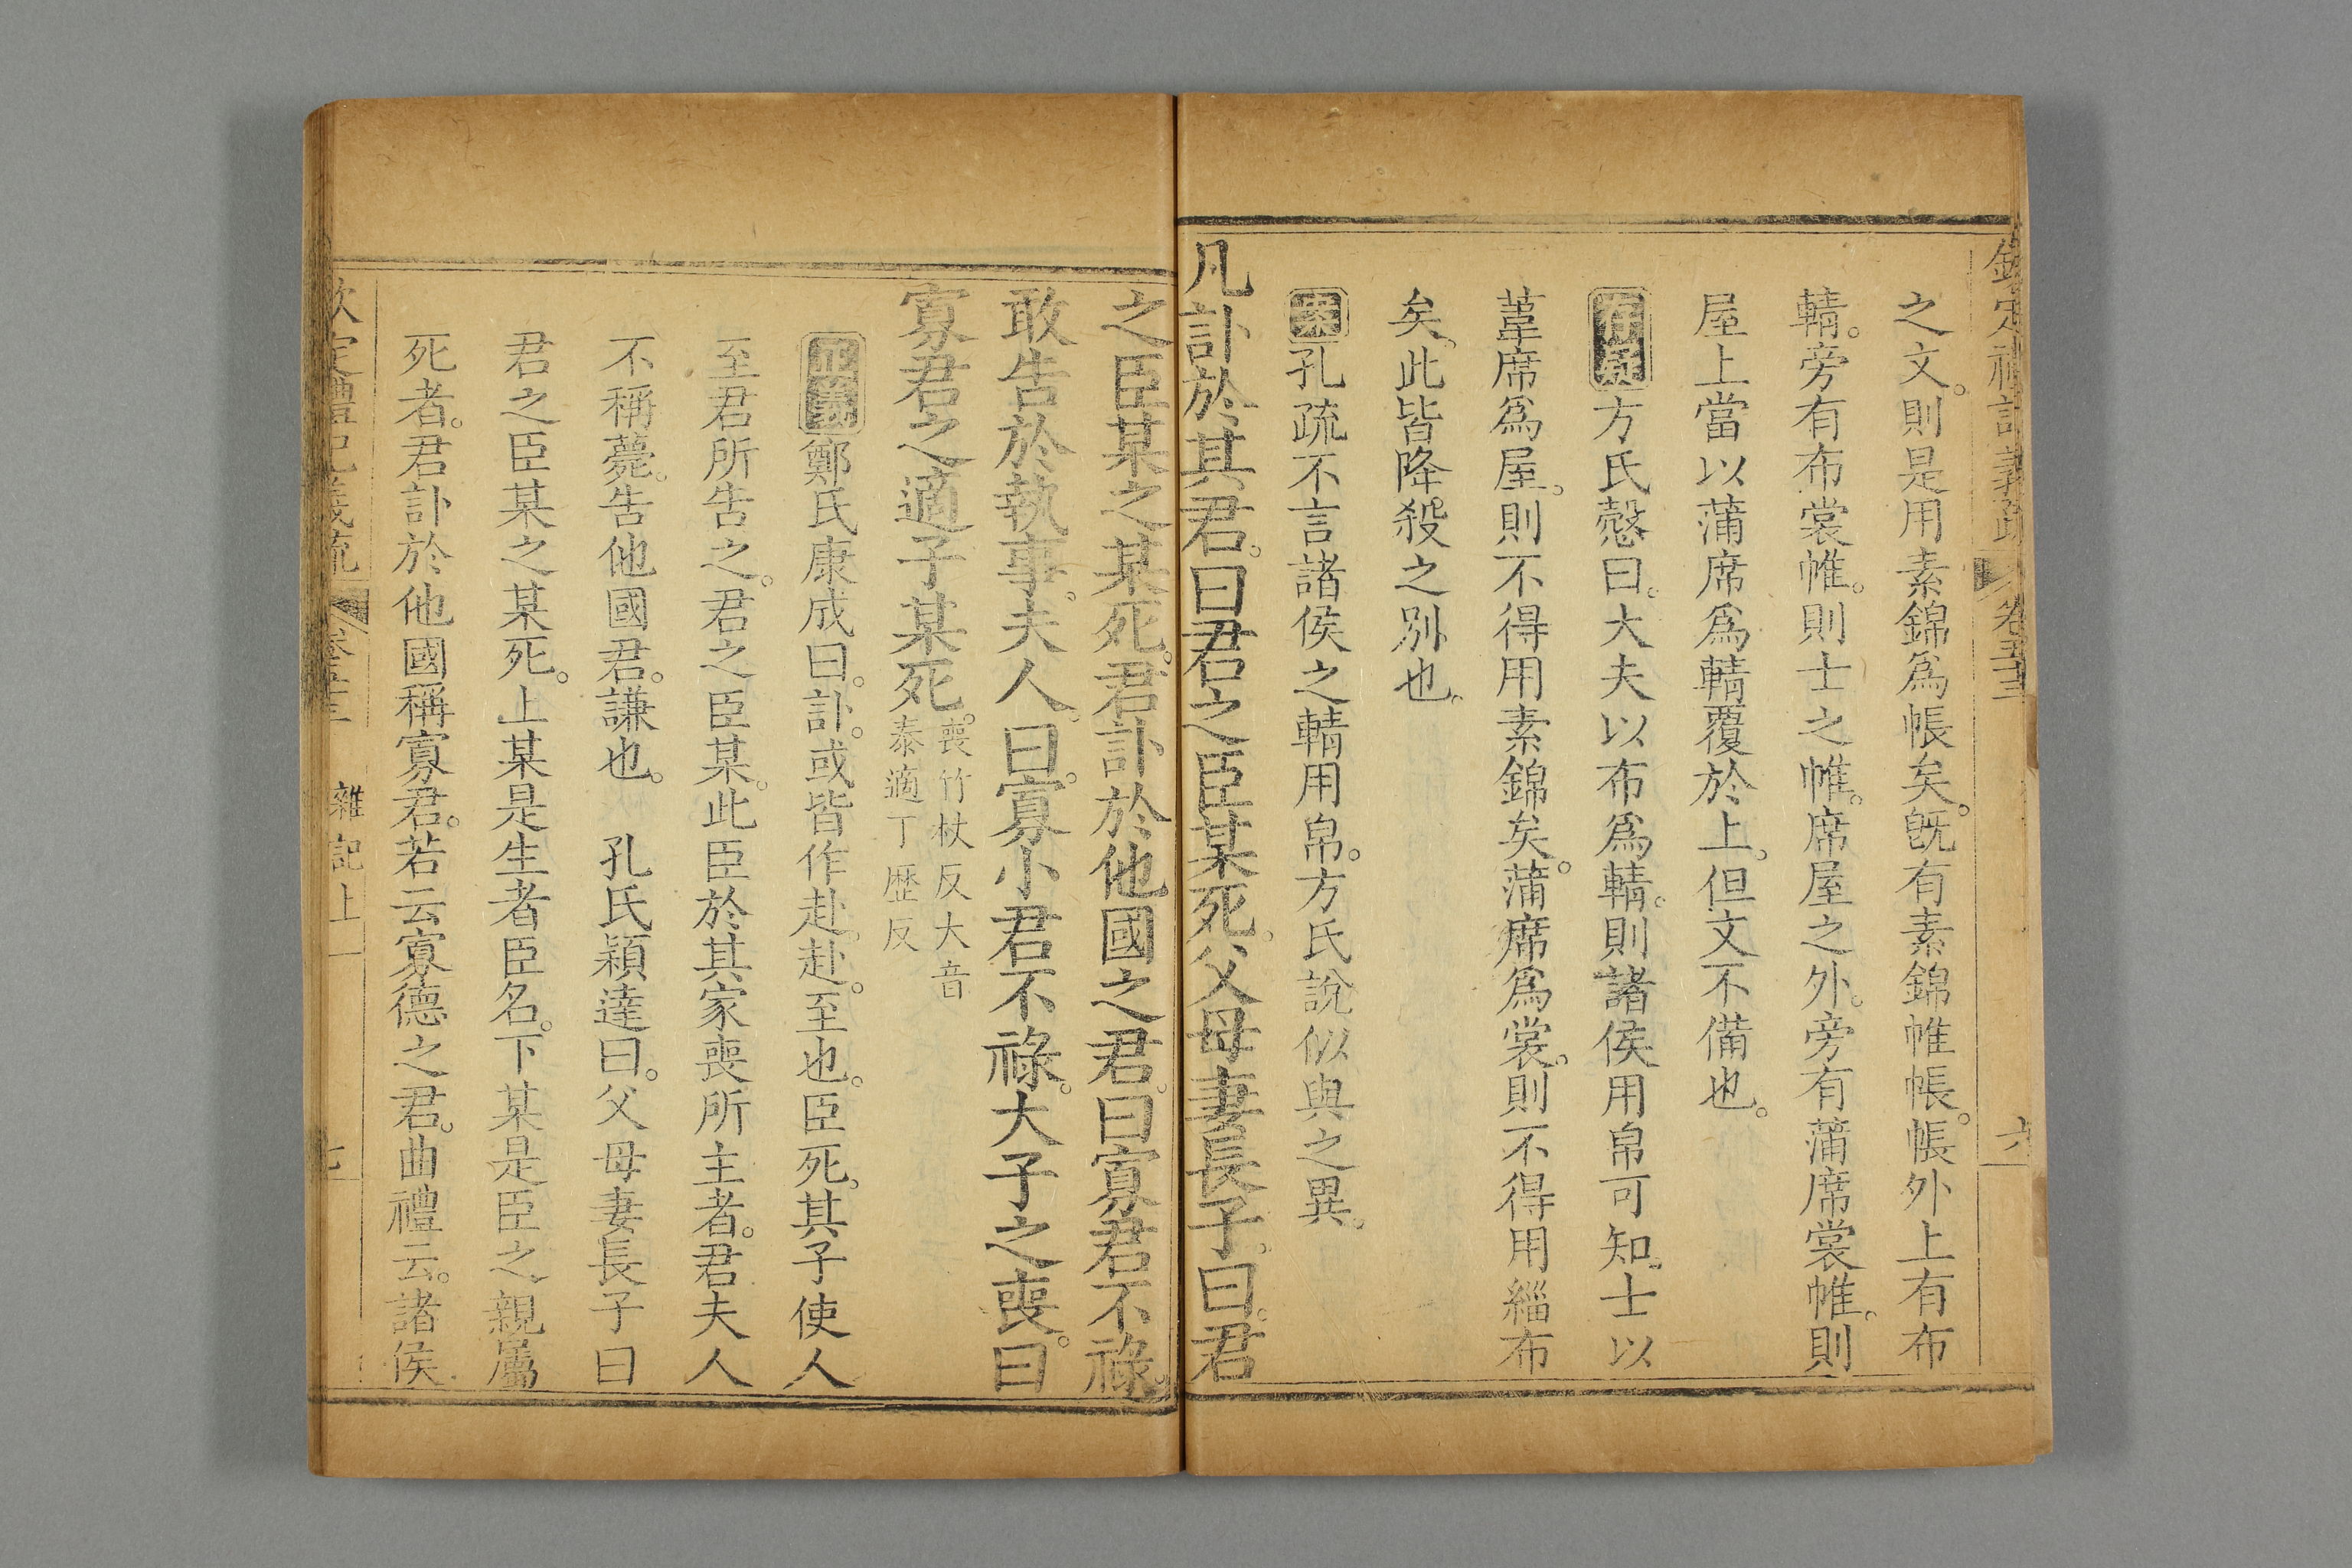 欽定禮記義疏 卷五十三 六
之文。則是用素錦爲帳矣。旣有素錦帷帳。帳外上有布
輤。旁有布裳帷。則士之帷。席屋之外。旁有蒲席裳帷。則
屋上當以蒲席爲輤覆於上。但文不備也。
方氏慤曰。大夫以布爲輤。則諸侯用帛可知。士以
葦席爲屋。則不得用素錦矣。蒲席爲裳。則不得用緇布
矣。此皆降殺之別也。
案孔疏不言諸侯之輤用帛。方氏說似與之異。
凡訃於其君。曰君之臣某死。父母妻長子。曰。君
之臣某之某死。君訃於他國之君。曰寡君不祿。
敢告於執事。夫人。曰。寡小君不祿。大子之喪。曰
寡君之適子某死。
喪竹杖反大音
泰適丁歷反
正義鄭氏康成曰。訃。或皆作赴。赴。至也。臣死。其子使人
至君所告之。君之臣某。此臣於其家喪所主者。君夫人
不稱薨。告他國君。謙也。 孔氏穎達曰。父母妻長子曰
君之臣某之某死。上某是生者臣名。下某是臣之親屬
死者。君訃於他國稱寡君。若云寡德之君。曲禮云。諸侯
欽定禮記義疏 卷五十三 雜記上 七